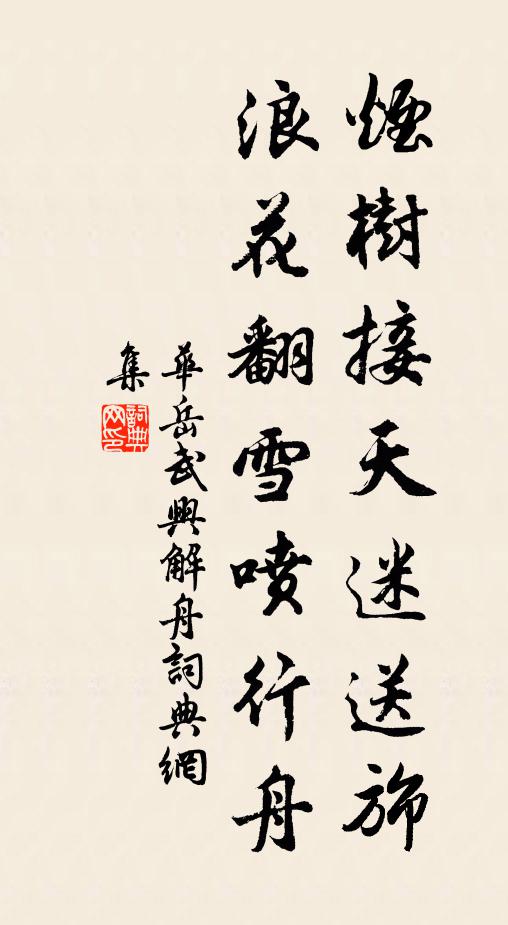 煙樹接天迷送旆
浪花翻雪噴行舟
華岳武興解舟詞典網
集
詞典
网印